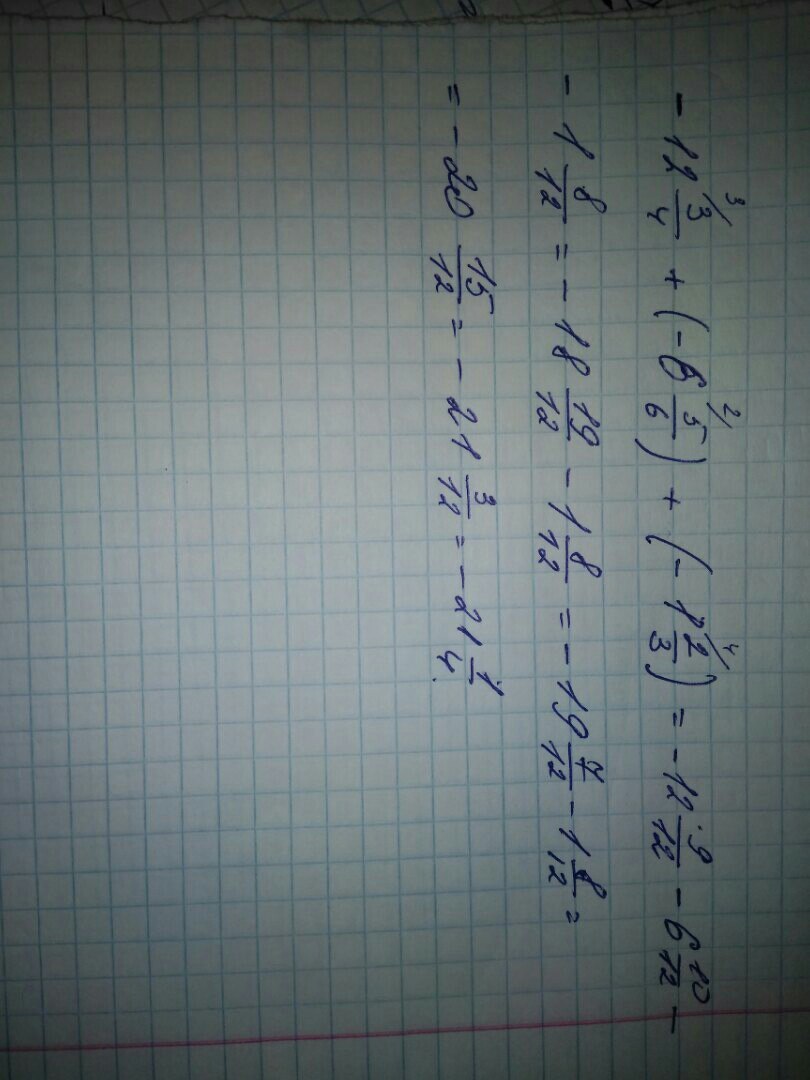 - 12 3/ 3/4 + (- 6 2/ 5/6) + (- 1 4/ 2/3) = - 12 9/12 - 6 10/12 -
- 1 8/12 = - 18 19/12 - 1 8/12 = - 19 7/12 - 1 8/12 =
= - 20 15/12 = - 21 3/12 = - 21 1/4.